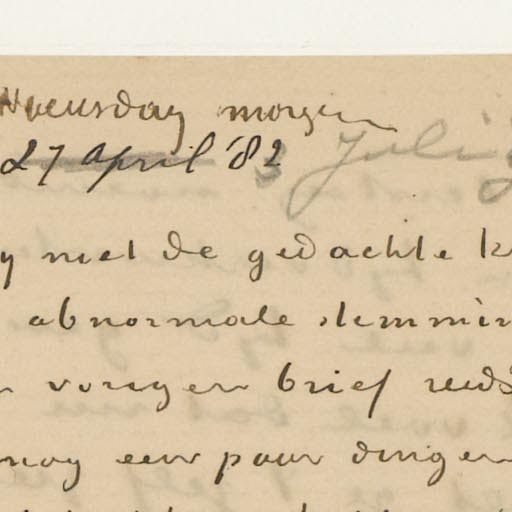 Woensdag morgen
27 april '82 3 Juli
y met de gedachte k
abnormale stemmin
n vorigen brief reeds
nog een paar dingen